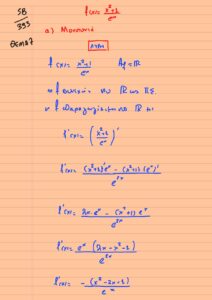 5Β
393
ΘΕΜΑ 7
f(x) = x²+1 / eˣ
α) Μονοτονία
ΛΥΣΗ
f(x) = x²+1 / eˣ Af = ℝ
η f συνεχής στο ℝ ως π.σ.
η f παραγωγίσιμη στο ℝ
f'(x) = (x²+1 / eˣ)'
f'(x) = (x²+1)'eˣ - (x²+1)(eˣ)' / e²ˣ
f'(x) = 2x·eˣ - (x²+1)eˣ / e²ˣ
f'(x) = eˣ(2x-x²-1) / e²ˣ
f'(x) = -(x²-2x+1) / eˣ